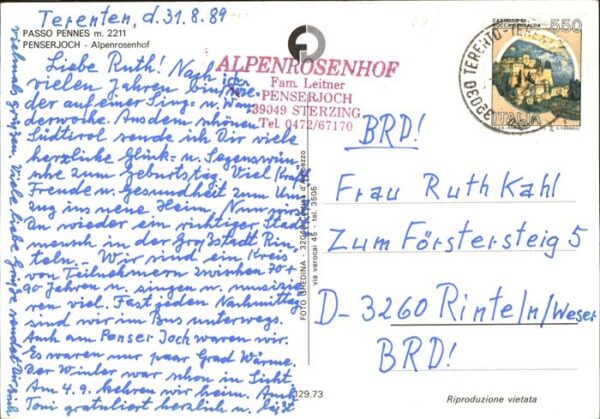 Terenten, d. 31.8.89
PASSO PENNES m. 2211
PENSERJOCH - Alpenrosenhof
Liebe Ruth! Nach
vielen Jahren bin ich wieder
der auf einer Sing- u. Wan-
derwoche. Aus dem schönen
Südtirol sende ich Dir viele
herzliche Glück- u. Segenswün-
sche zum Geburtstag. Viel Kraft,
Freude u. Gesundheit zum Um-
zug ins neue Heim. Nun wirst
Du wieder ein richtiger Stadt-
mensch in der Großstadt Rin-
teln. - Wir sind ein Kreis
von Teilnehmern zwischen 30 +
90 Jahren u. singen u. musizie-
ren viel. Fast jeden Nachmittag
sind wir im Bus unterwegs.
Auch am Penser Joch waren wir.
Es waren nur paar Grad Wärme.
Der Winter war schon in Sicht.
Am 4.9. kehren wir heim. Auch
Toni gratuliert herzlich u. läßt
vielmals grüßen. Viele liebe Grüße sendet Dir
ALPENROSENHOF
Fam. Leitner
PENSERJOCH
39049 STERZING
Tel. 0472/67170
FOTO GHEDINA - 32043 Cortina d'Ampezzo
via verocai 45 - tel. 3505
129.73
CASTELLO DI
ROCCA SINIBALDA
550
ITALIA
39030 TERENTO-TERENTEN
BRD!
Frau Ruth Kahl
Zum Förstersteig 5
D-3260 Rinteln/Weser
BRD!
Riproduzione vietata